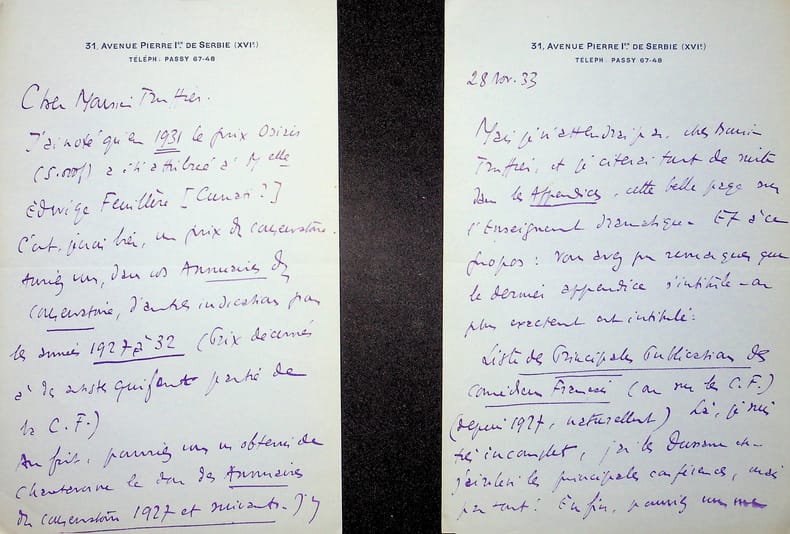 31, AVENUE PIERRE Iᵉʳ DE SERBIE (XVIᵉ)
TÉLÉPH. PASSY 67-48
Cher Monsieur Truffier.
J'ai noté qu'en 1931 le prix Osiris
(5.000f) a été attribué à Melle
Edwige Feuillère [Cunati?]
C'est, je crois bien, un prix du conservatoire.
Auriez vous, dans vos Annuaires du
Conservatoire, d'autres indications pour
les années 1927 à 32 (Prix décernés
à des artistes qui font partie de
la C. F.)
Au fait, pourriez vous m'obtenir de
Chantavoine le don des Annuaires
du conservatoire 1927 et suivants. J'y
31, AVENUE PIERRE Iᵉʳ DE SERBIE (XVIᵉ)
TÉLÉPH. PASSY 67-48
28 Nov. 33
Mais je n'attendrai pas, cher Monsieur
Truffier, et je citerai tout de suite
dans les Appendices, cette belle page sur
l'Enseignement dramatique. Et à ce
propos : vous avez pu remarquer que
le dernier appendice s'intitule - ou
plus exactement est intitulé :
Liste des Principales Publications des
Comédiens Français (ou sur la C. F.)
(depuis 1927, naturellement) Là, je suis
très incomplet, j'ai les Dussane et
j'ai les principales conférences, mais
pas tout ! Enfin, pourriez vous